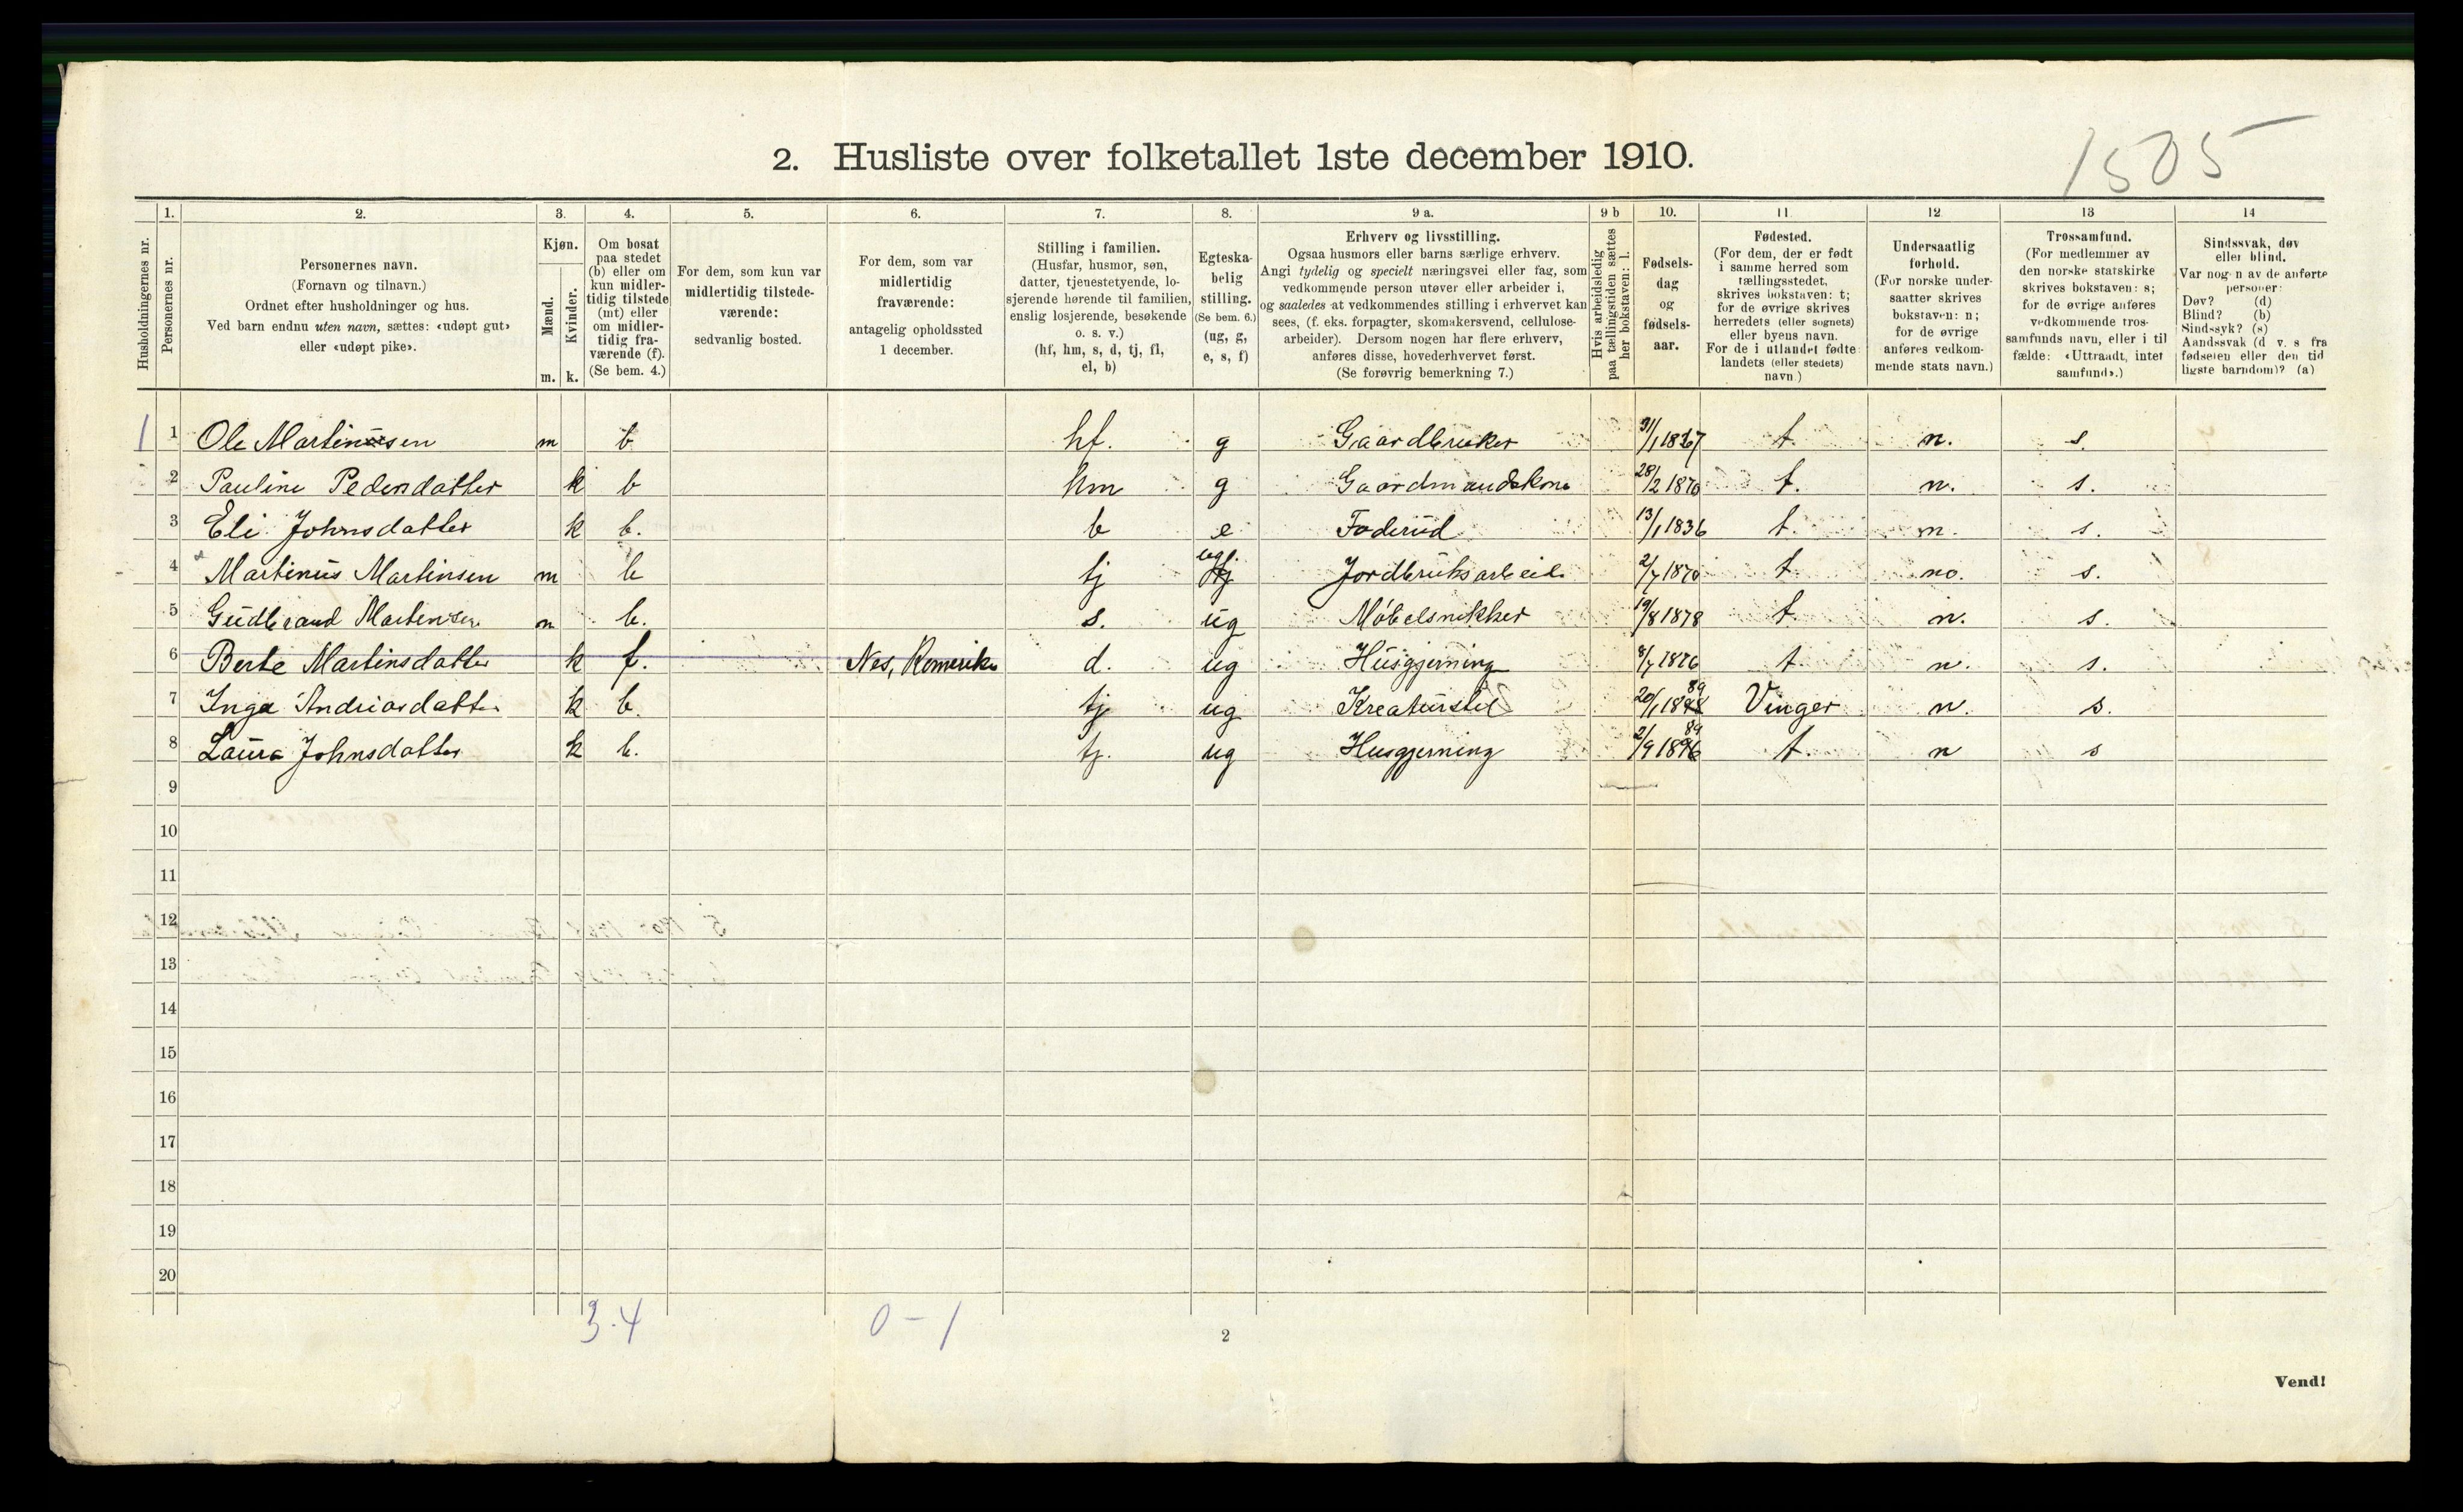 1505
2. Husliste over folketallet 1ste december 1910.
Husholdningernes nr.
1. Personernes nr.
2. Personernes navn. (Fornavn og tilnavn.) Ordnet efter husholdninger og hus. Ved barn endnu uten navn, sættes: «udøpt gut» eller «udøpt pike».
3. Kjøn. Mænd. m. Kvinder. k.
4. Om bosat paa stedet (b) eller om kun midlertidig tilstede (mt) eller om midlertidig fraværende (f). (Se bem. 4.)
5. For dem, som kun var midlertidig tilstedeværende: sedvanlig bosted.
6. For dem, som var midlertidig fraværende: antagelig opholdssted 1 december.
7. Stilling i familien. (Husfar, husmor, søn, datter, tjenestetyende, losjerende hørende til familien, enslig losjerende, besøkende o. s. v.) (hf, hm, s, d, tj, fl, el, b)
8. Egteskabelig stilling. (Se bem. 6.) (ug, g, e, s, f)
9 a. Erhverv og livsstilling. Ogsaa husmors eller barns særlige erhverv. Angi tydelig og specielt næringsvei eller fag, som vedkommende person utøver eller arbeider i, og saaledes at vedkommendes stilling i erhvervet kan sees, (f. eks. forpagter, skomakersvend, cellulosearbeider). Dersom nogen har flere erhverv, anføres disse, hovederhvervet først. (Se forøvrig bemerkning 7.)
9 b Hvis arbeidsledig paa tællingstiden sættes her bokstaven: l.
10. Fødselsdag og fødselsaar.
11. Fødested. (For dem, der er født i samme herred som tællingsstedet, skrives bokstaven: t; for de øvrige skrives herredets (eller sognets) eller byens navn. For de i utlandet fødte landets (eller stedets) navn)
12 Undersaatlig forhold. (For norske undersaatter skrives bokstaven: n; for de øvrige anføres vedkommende stats navn.)
13 Trossamfund. (For medlemmer av den norske statskirke skrives bokstaven: s; for de øvrige anføres vedkommende trossamfunds navn, eller i tilfælde: «Uttraadt, intet samfund».)
14 Sindssvak, døv eller blind. Var nogen av de anførte personer: Døv? (d) Blind? (b) Sindssyk? (s) Aandssvak (d v. s fra fødselen eller den tidligste barndom)? (a)
1 1 Ole Martinusen m b hf. g Gaardbruker 31/1 1867 t. n. s.
2 Pauline Pedersdatter k b hm g Gaardmandskone 28/2 1870 t. n. s.
3 Eli Johnsdatter k b. b e Føderåd 13/1 1836 t. n. s.
4 Martinus Martinsen m b tj ug Jordbruksarbeid. 2/7 1870 t no. s.
5 Gudbrand Martinsen m b. s. ug Møbelsnekker 19/8 1878 t n. s.
6 Berte Martinsdatter k f. Nes, Romerike d. ug Husgjerning 8/7 1876 t n. s.
7 Inga Andreasdatter k b. tj. ug Kreaturstel 20/1 1889 Vinger n. s.
8 Laura Johnsdatter k b. tj. ug Husgjerning 2/9 1889 t. n s
9
10
11
12
13
14
15
16
17
18
19
20
3.4 0-1
2
Vend!